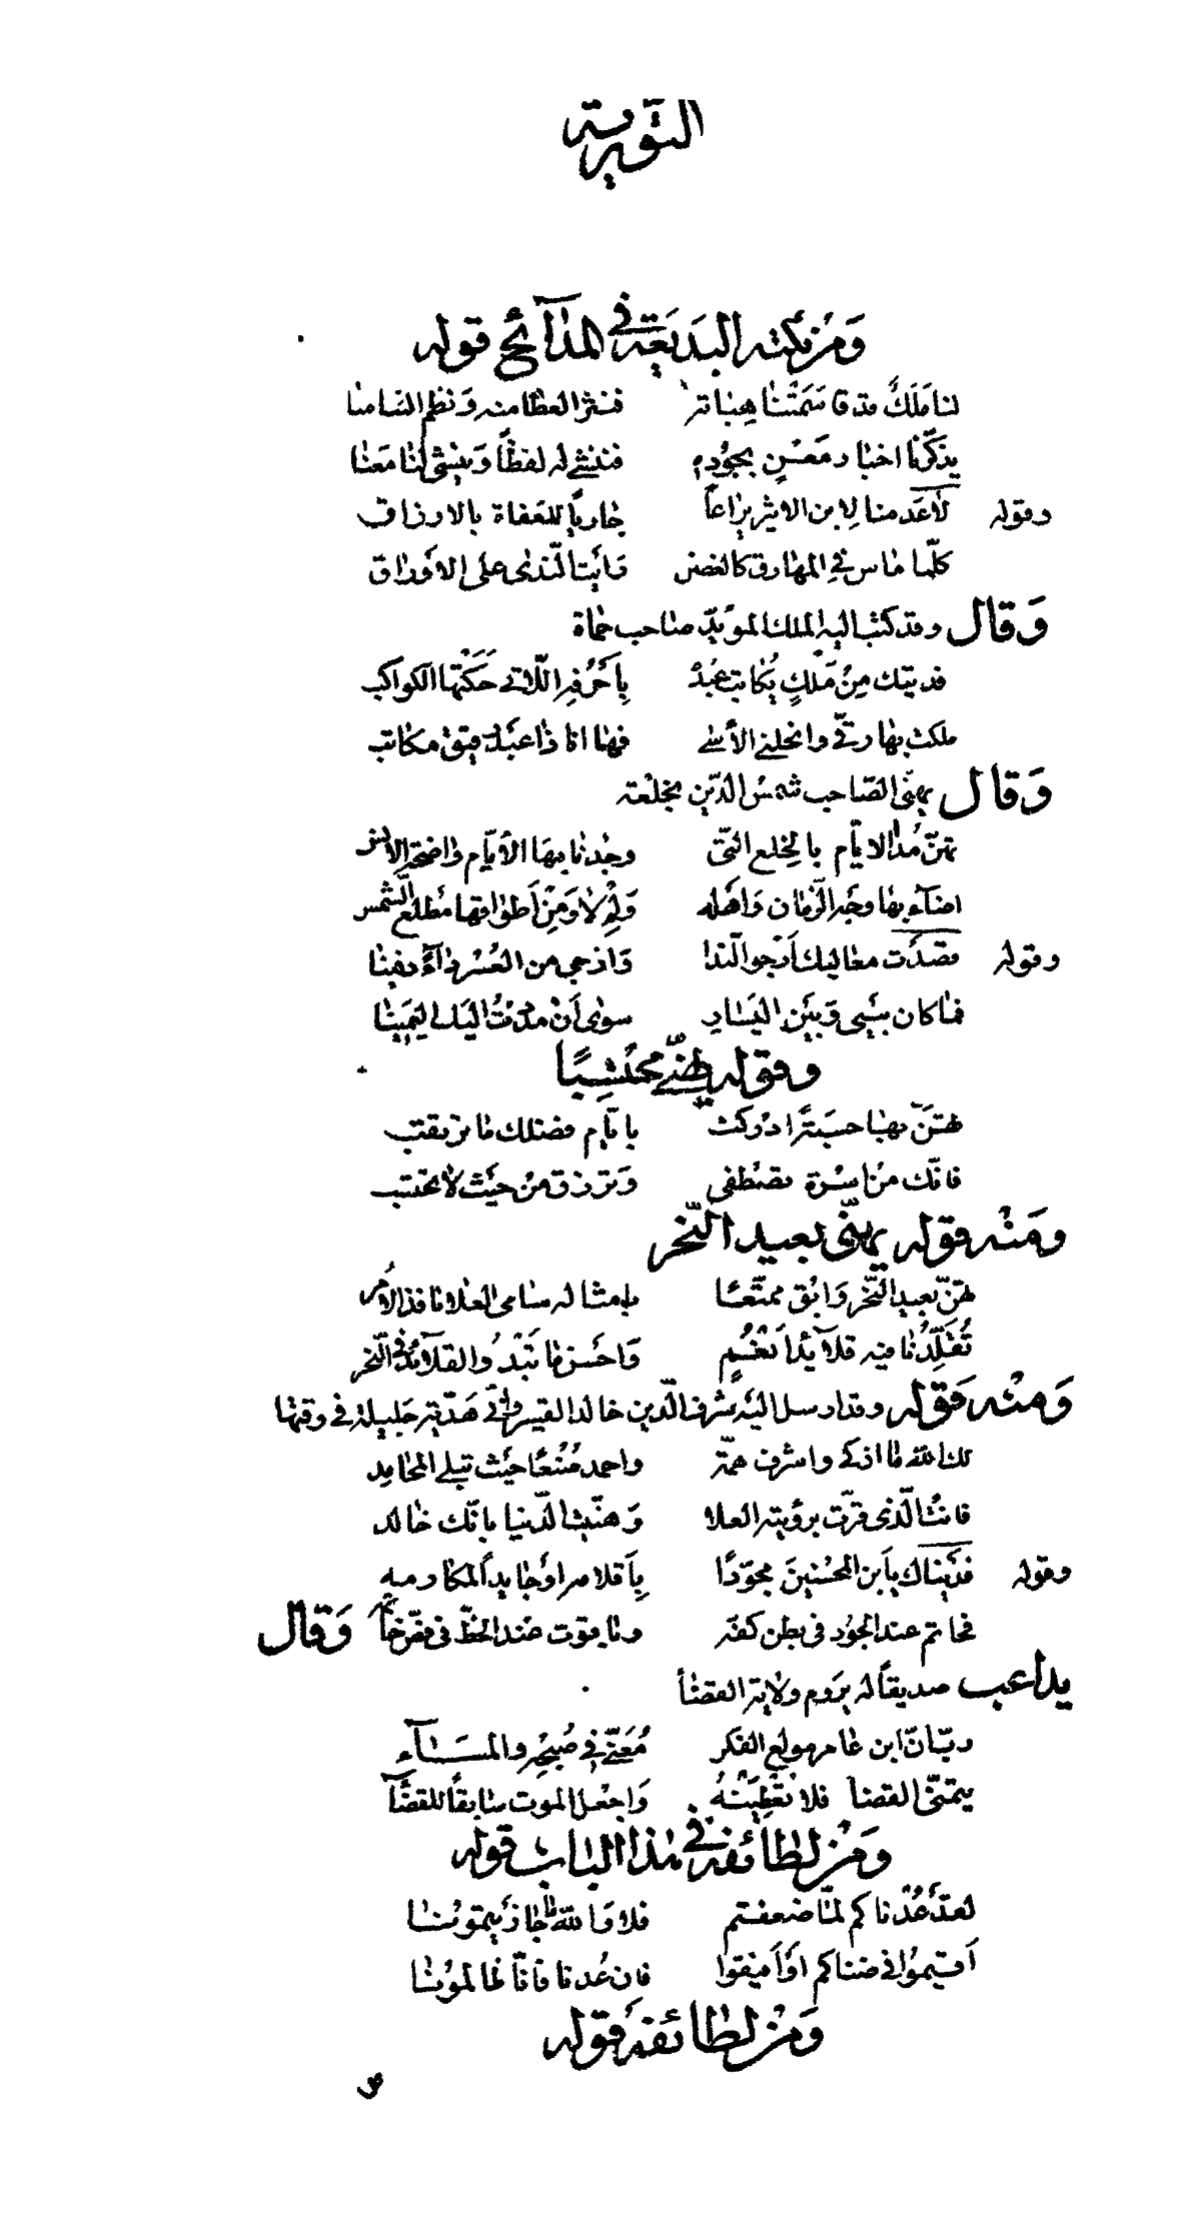 التورية
ومن نكته البديعة في المدائح قوله
لنا ملك قد قاسمتنا هباته فنثر العطا منه ونظم الثنا منا
يذكرنا اخبار معن بجوده فننشي له لفظا وينشي لنا معنا
وقوله لا عدمنا لابن الاثير يراعا جاريا للعفاة بالارزاق
كلما ماس في المهارق كالغصن رأيت الندى على الاوراق
وقال وقد كتب اليه الملك المؤيد صاحب حماة
فديتك من ملك يكاتب عبده بأحرفه اللاتي حكتها الكواكب
ملكت بها رقي وانحلني الأسى فها انا ذا عبد رقيق مكاتب
وقال يهنى الصاحب شمس الدين بخلعته
تهن مدا الايام بالخلع التي وجدنا بها الأيام واضحة الانس
اضاء بها وجه الزمان واهله ولم لا ومن اطواقها مطلع الشمس
وقوله قصدت معاليك أرجو الندا واذ حي من العسر داء دفينا
فما كان بيني وبين اليسار سوى أن مددت اليك اليمينا
وقوله يهني محتسبا
تهن بها حسبة ادركت بايام فضلك ما ترتقب
فانك من اسرة تصطفى وترزق من حيث لا تحتسب
ومنه قوله يهنى بعيد النحر
تهن بعيد النحر وابق ممتعا بامثاله سامى العلا نافذ الأمر
تقلدنا فيه قلائد أنعم واحسن ما تبدو القلائد في النحر
ومنه قوله وقد ارسل اليه شرف الدين خالد القيسراني هدية جليلة في وقتها
لك الله ما اذكى واشرف همة واحمد صنعا حيث تبلى المحامد
فانت الذى قرت برؤيته العلا وهنيت الدنيا بانك خالد
وقوله فديناك يابن المحسنين مجودا بأقلامه او جايدا بمكارمه
فحاتم عند الجود في بطن كفه وياقوت عند الخط في فص خاتمه وقال
يداعب صديقا له يروم ولاية القضا
رب ان ابن عامر مولع الفكر معنى في صبحه والمساء
يتمنى القضا فلا تعطينه واجعل الموت سابقا للقضاء
ومن لطائفه في هذا الباب قوله
لقد عدناكم لما ضعفتم فلا والله ما جازيتمونا
أقيموا في ضناكم أو أفيقوا فان عدنا فانا ظالمونا
ومن لطائفه قوله